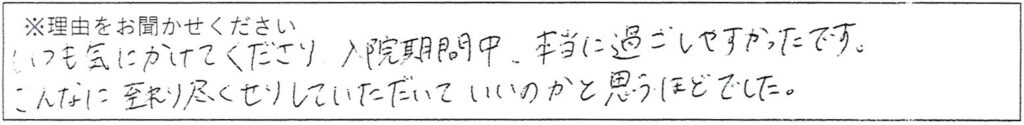 ※理由をお聞かせください
いつも気にかけてくださり、入院期間中、本当に過ごしやすかったです。
こんなに至れり尽くせりしていただいていいのかと思うほどでした。